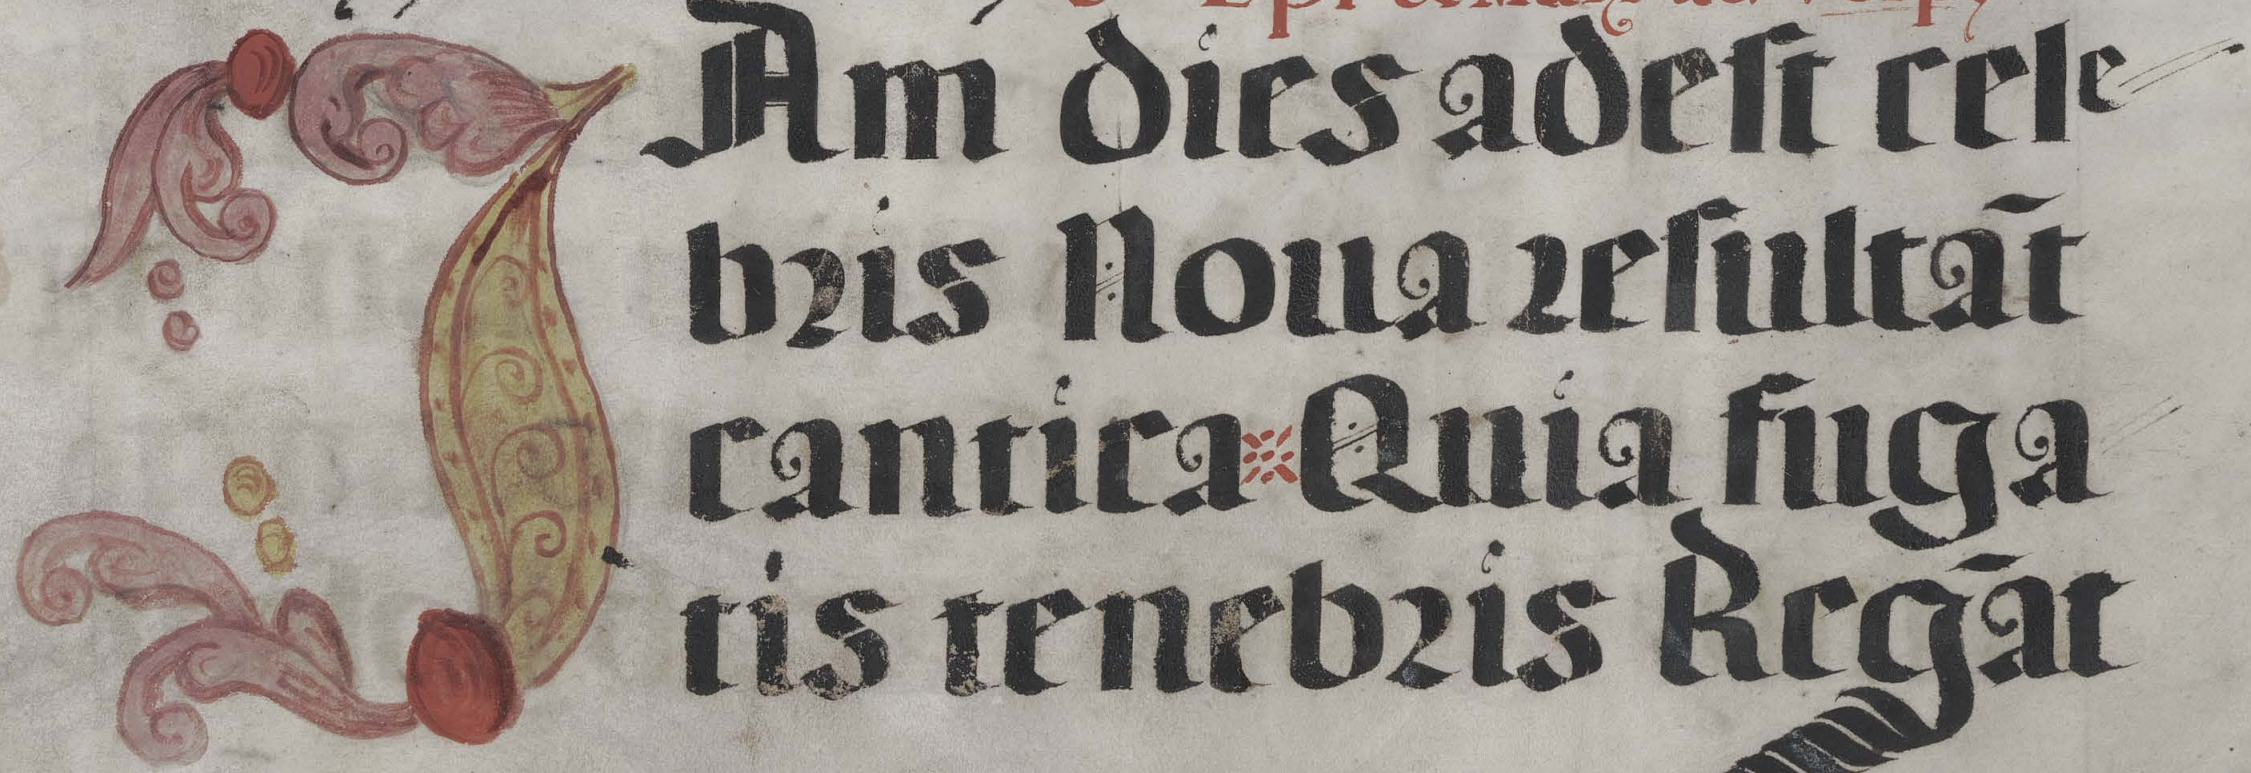 IAm dies adest cele
bris Noua resultāt
cantica Quia fuga
tis tenebris Regāt